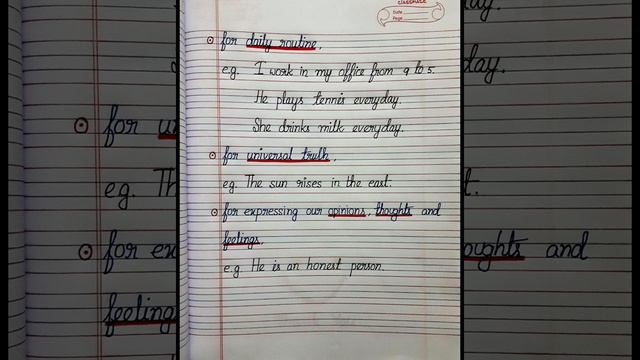 classmate
Date
Page
⊙ for daily routine,
e.g. I work in my office from 9 to 5.
He plays tennis everyday.
She drinks milk everyday.
⊙ for universal truth,
eg. The sun rises in the east.
⊙ for expressing our opinions, thoughts and
feelings,
e.g. He is an honest person.